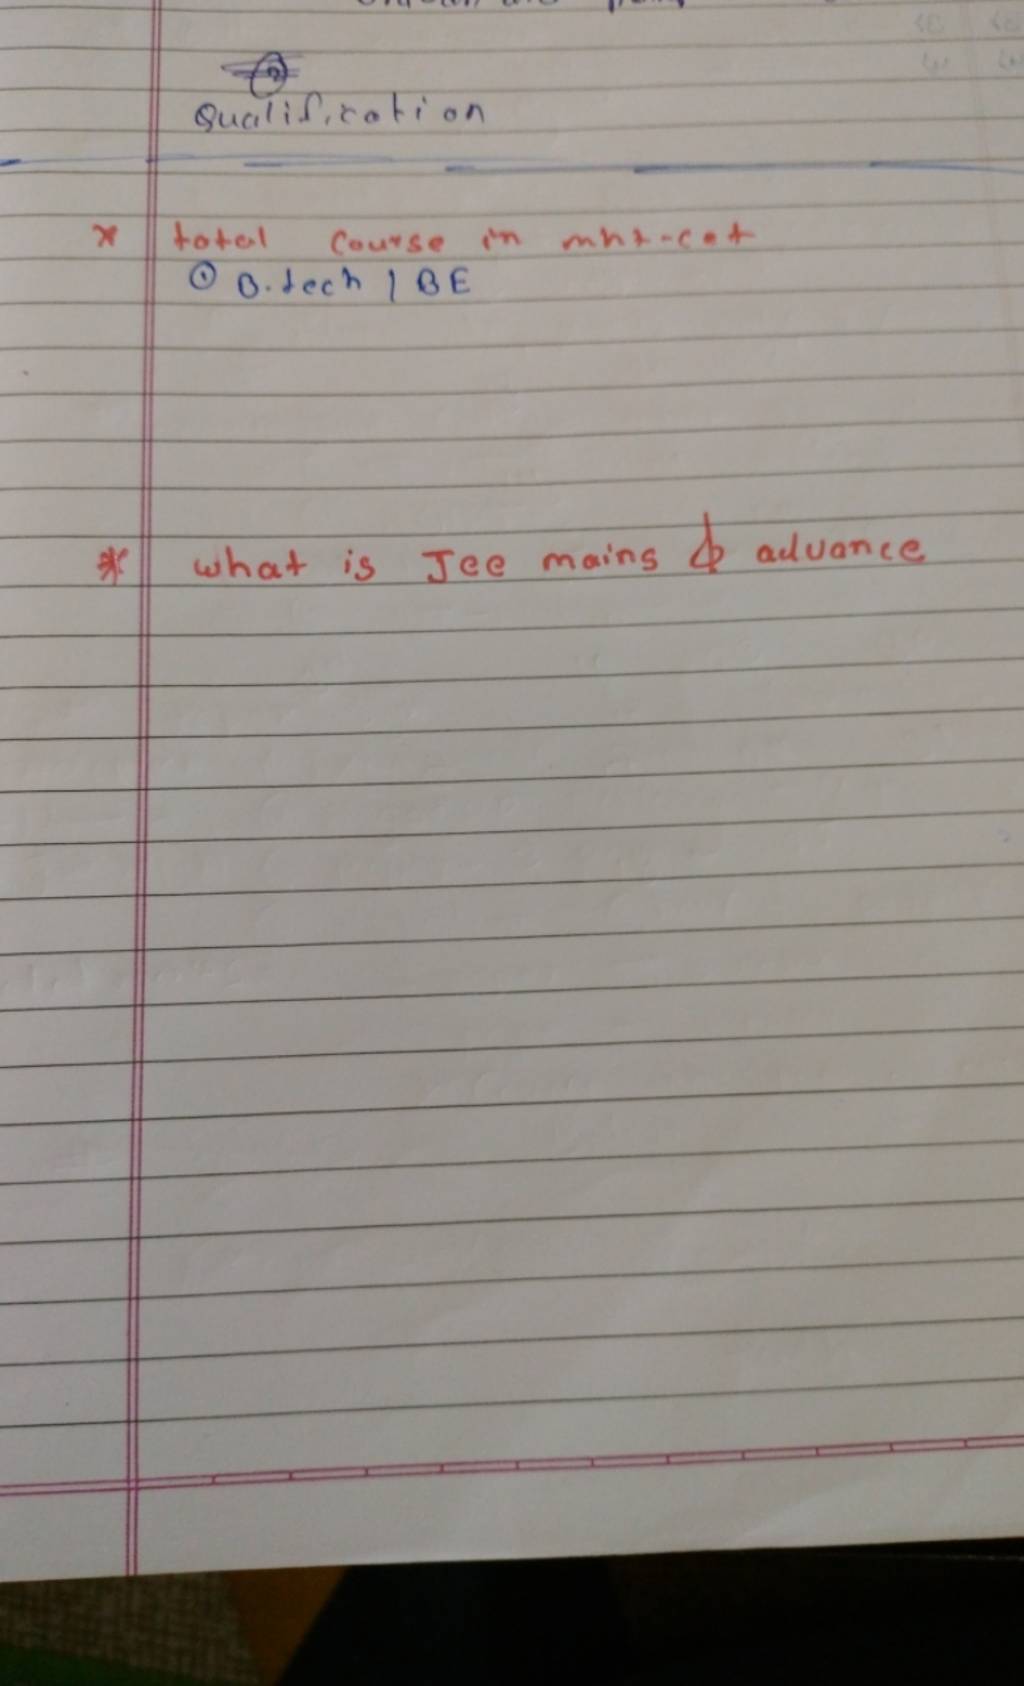 ②
Qualification
* total course in mht-cet
① B.tech | BE
* what is Jee mains & advance